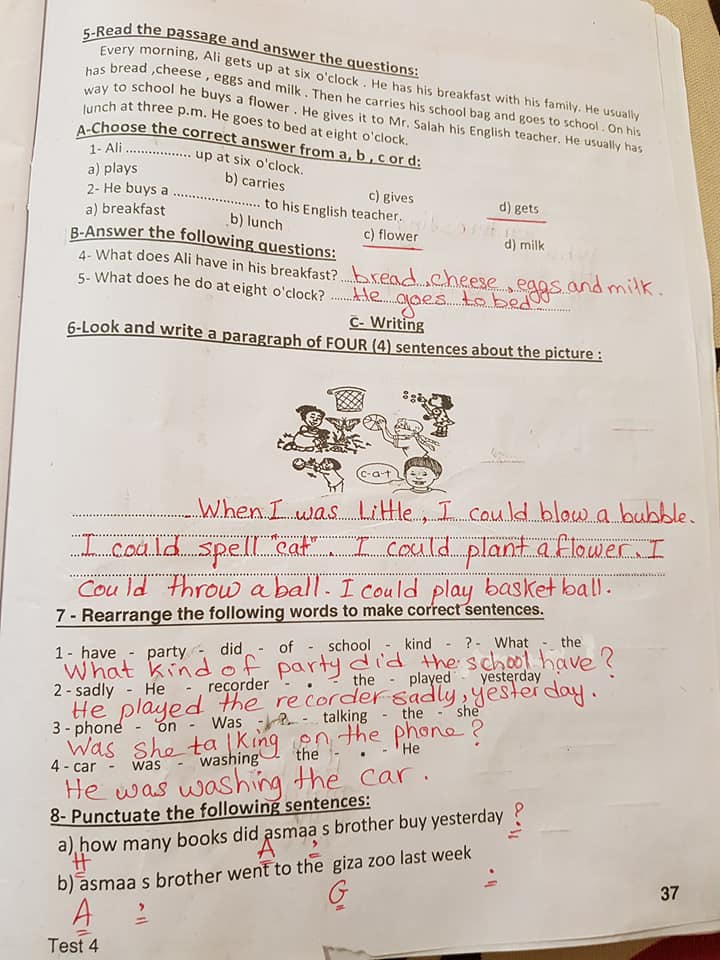 5-Read the passage and answer the questions:
Every morning, Ali gets up at six o'clock . He has his breakfast with his family. He usually
has bread ,cheese , eggs and milk . Then he carries his school bag and goes to school . On his
way to school he buys a flower . He gives it to Mr. Salah his English teacher. He usually has
lunch at three p.m. He goes to bed at eight o'clock.
A-Choose the correct answer from a, b , c or d:
1- Ali ................ up at six o'clock.
a) plays b) carries c) gives d) gets
2- He buys a ..................... to his English teacher.
a) breakfast b) lunch c) flower d) milk
B-Answer the following questions:
4- What does Ali have in his breakfast? bread ,cheese , eggs and milk .
5- What does he do at eight o'clock? He goes to bed
C- Writing
6-Look and write a paragraph of FOUR (4) sentences about the picture :
c-a-t
When I was little, I could blow a bubble.
I could spell "cat". I could plant a flower. I
Could throw a ball. I could play basket ball.
7 - Rearrange the following words to make correct sentences.
1 - have - party - did - of - school - kind - ? - What - the
What kind of party did the school have ?
2 - sadly - He - recorder - . - the - played - yesterday
He played the recorder sadly, yesterday .
3 - phone - on - Was - ? - talking - the - she
Was she talking on the phone ?
4 - car - was - washing - the - . - He
He was washing the car .
8- Punctuate the following sentences:
a) how many books did asmaa s brother buy yesterday ?
H A '
b) asmaa s brother went to the giza zoo last week .
A ' G
37
Test 4